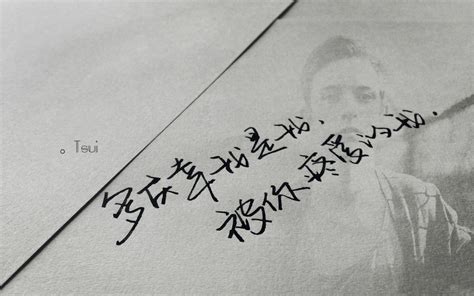 Tsui
多庆幸我是我.
被你疼爱的我.